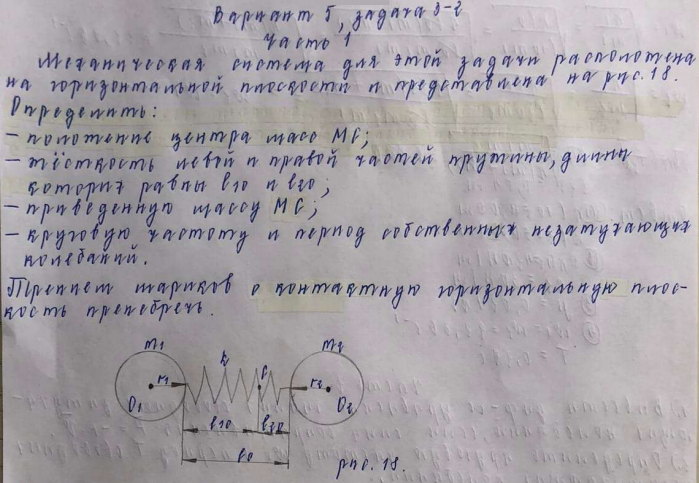 Вариант 5, задача 3-2
Часть 1
Механическая система для этой задачи расположена
на горизонтальной плоскости и представлена на рис. 18.
Определить:
- положение центра масс МС;
- жёсткость левой и правой частей пружины, длины
которих равны l10 и l20;
- приведенную массу МС;
- круговую частоту и период собственных незатухающих
колебаний.
Трением шариков о контактную горизонтальную плос-
кость пренебречь.
m1 k C m2
r1 r2
O1 O2
l10 l20
l0
рис. 18.